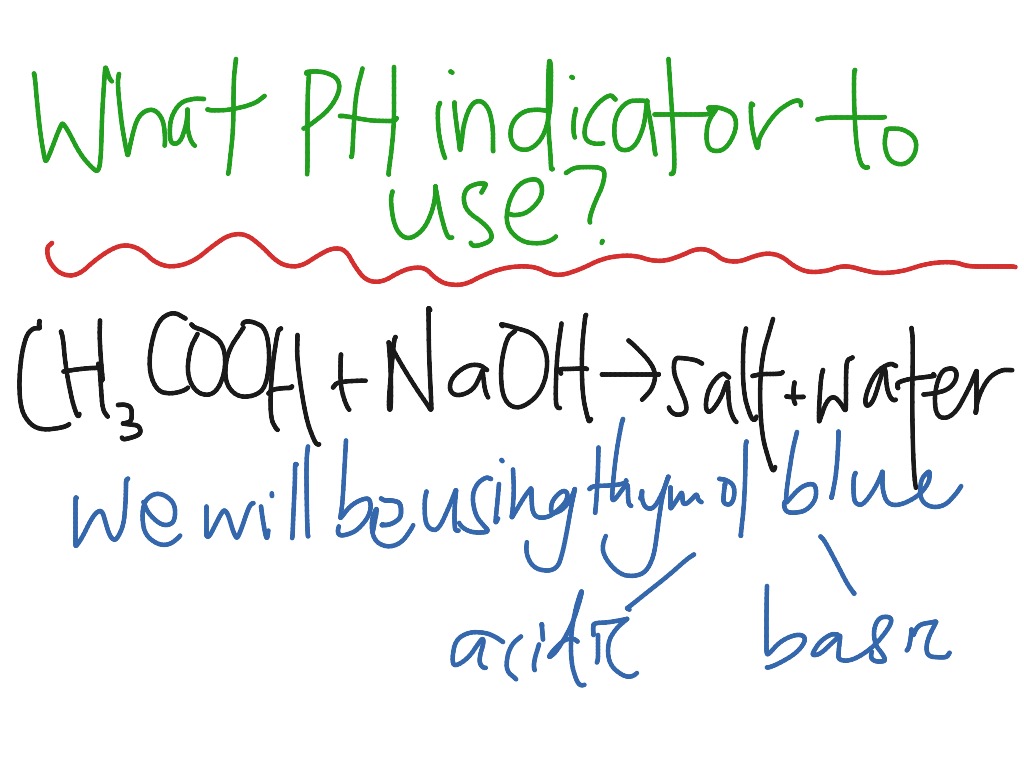 What PH indicator to
use?
CH3COOH + NaOH → salt + water
we will be using thymol blue
acidic basic